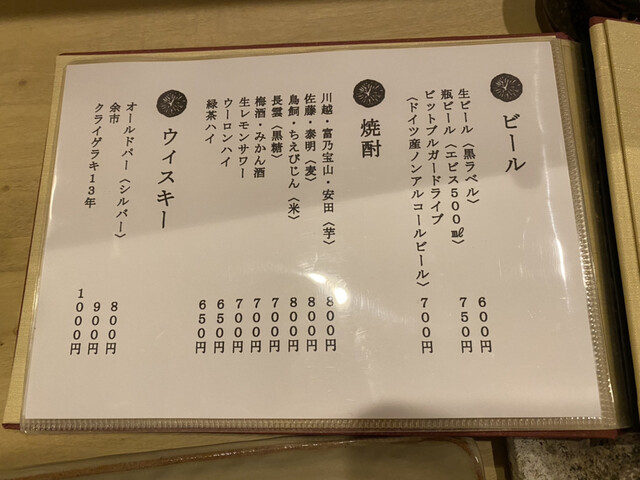 ビール
生ビール〈黒ラベル〉 600円
瓶ビール〈エビス500㎖〉 750円
ビットブルガードライブ
〈ドイツ産ノンアルコールビール〉 700円
焼酎
川越・富乃宝山・安田〈芋〉 800円
佐藤・泰明〈麦〉 800円
鳥飼・ちえびじん〈米〉 800円
長雲〈黒糖〉 700円
梅酒・みかん酒 700円
生レモンサワー 700円
ウーロンハイ 650円
緑茶ハイ 650円
ウィスキー
オールドパー〈シルバー〉 800円
余市 900円
クライゲラキ13年 1000円